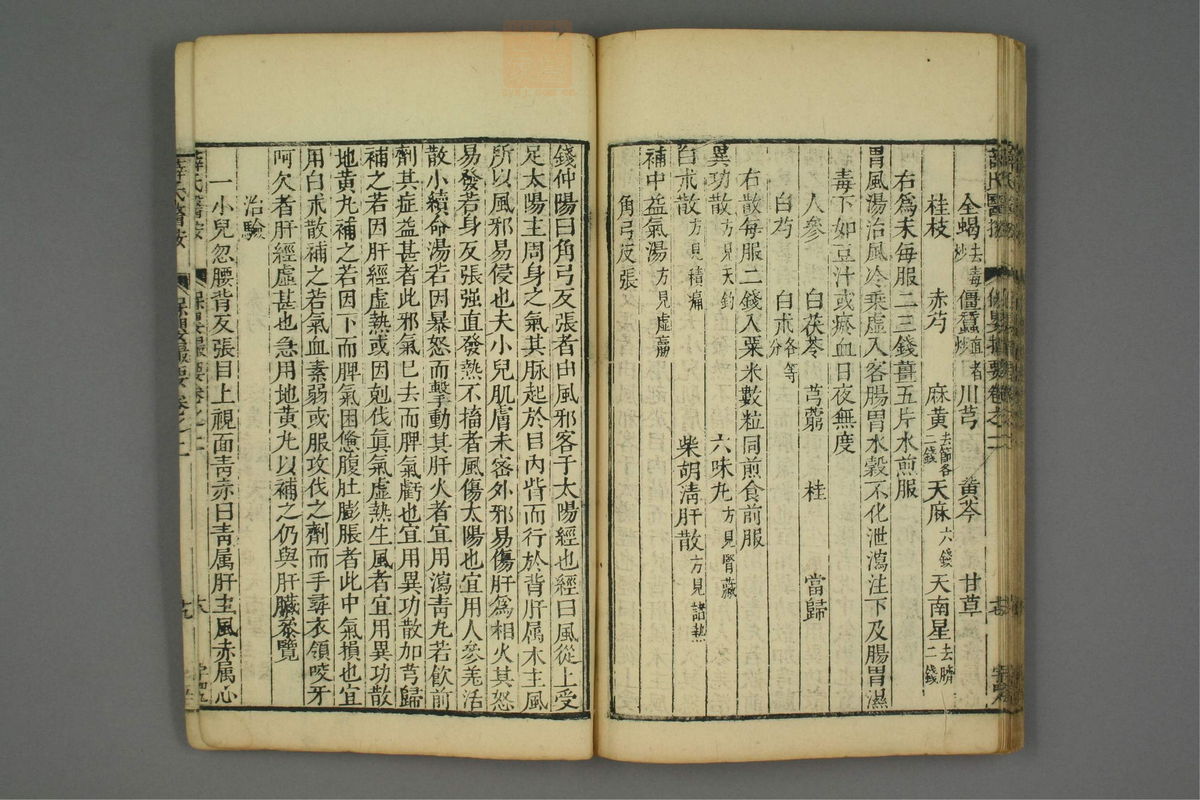 全蝎去毒炒 僵蠶直者炒 川芎 黄芩 甘草
桂枝 赤芍 麻黄去節各二錢 天麻六錢 天南星去臍二錢
右爲末每服二三錢薑五片水煎服
胃風湯治風冷乗虚入客腸胃水穀不化泄瀉注下及腸胃濕
毒下如豆汁或瘀血日夜無度
人參 白茯苓 芎藭 桂 當歸
白芍 白朮各等分
右散每服二錢入粟米數粒同煎食前服
異功散方見天釣 六味丸方見腎藏
白朮散方見積痛 柴胡清肝散方見諸熱
補中益氣湯方見虚羸
角弓反張
錢仲陽曰角弓反張者由風邪客于太陽經也經曰風從上受
足太陽主周身之氣其脉起於目内眥而行於背肝属木主風
所以風邪易侵也夫小兒肌膚未密外邪易傷肝爲相火其怒
易發若身反張强直發熱不搐者風傷太陽也宜用人參羌活
散小續命湯若因暴怒而擊動其肝火者宜用瀉青丸若飲前
劑其症益甚者此邪氣巳去而脾氣虧也宜用異功散加芎歸
補之若因肝經虚熱或因剋伐眞氣虚熱生風者宜用異功散
地黄丸補之若因下而脾氣困憊腹肚膨脹者此中氣損也宜
用白朮散補之若氣血素弱或服攻伐之劑而手尋衣領咬牙
呵欠者肝經虚甚也急用地黄丸以補之仍與肝臟叅覽
治驗
一小兒忽腰背反張目上視面青赤曰青属肝主風赤属心
薛氏醫按 保嬰撮要卷之二 十八